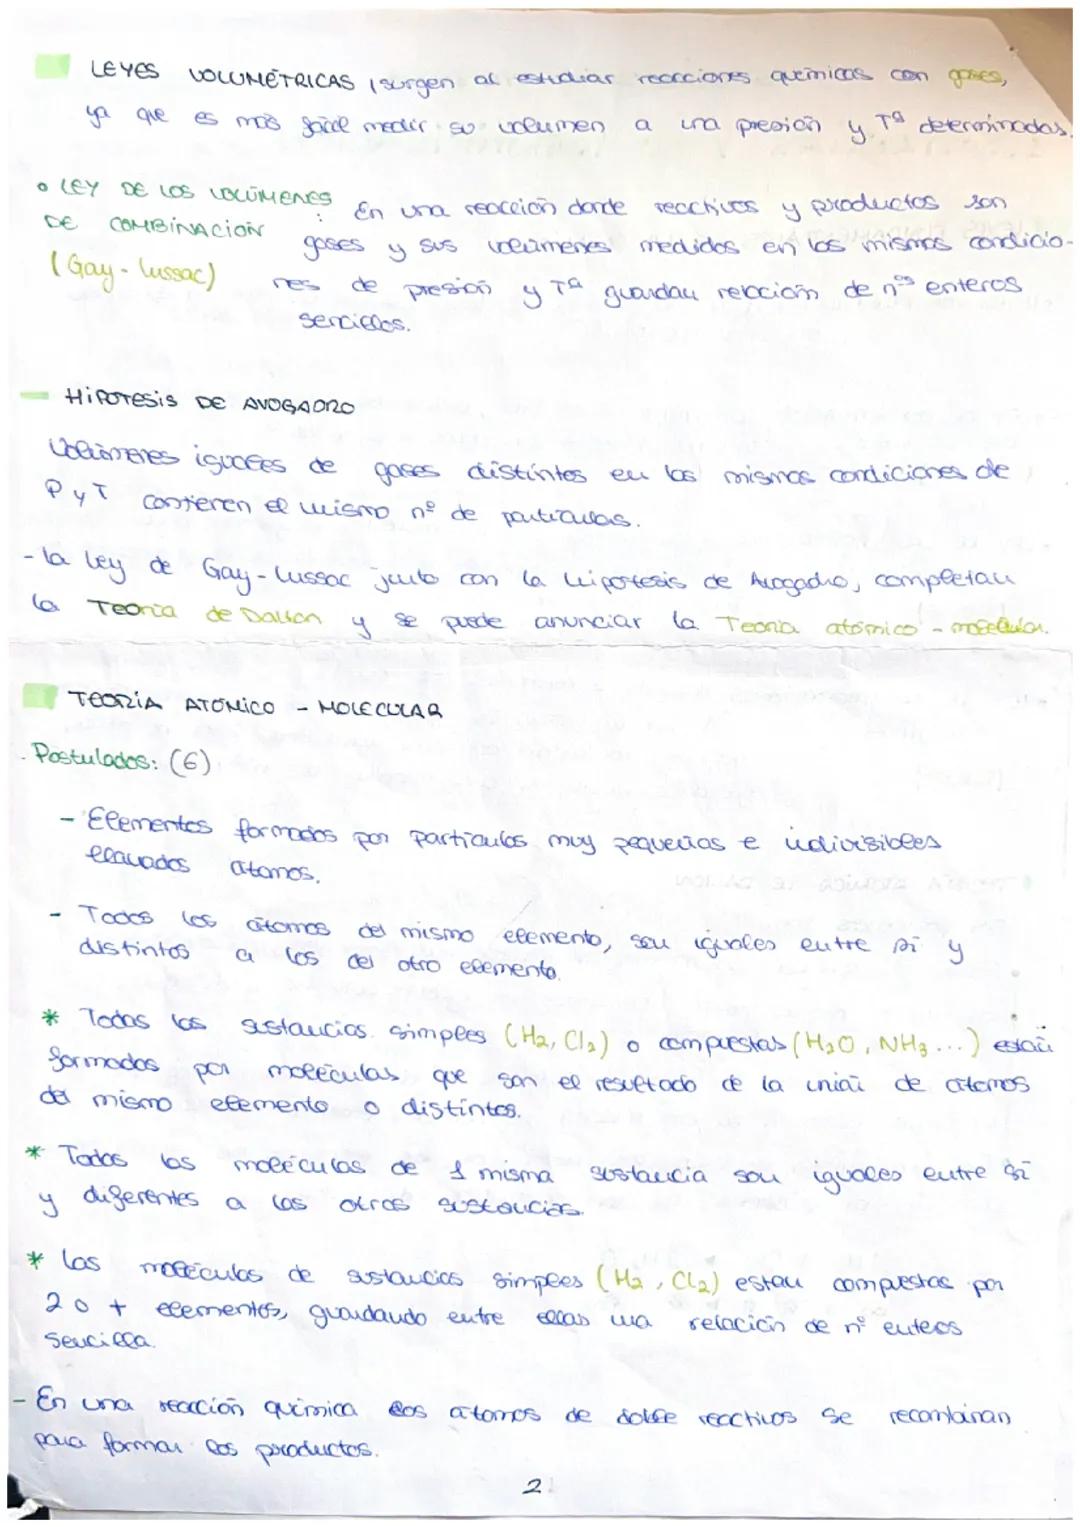 LEYES VOLUMÉTRICAS, surgen al estudiar reacciones químicas con gases,
ya que es más fácil medir su volumen a una presión y Tª determinadas.
• LEY DE LOS VOLÚMENES
DE COMBINACIÓN
(Gay-Lussac)
: En una reacción donde reactivos y productos son
gases y sus volúmenes medidos en las mismas condicio-
nes de presión y Tª guardan relación de nºs enteros
sencillos.
- HIPOTESIS DE AVOGADRO
Volúmenes iguales de gases distintos en las mismas condiciones de
P y T contienen el mismo nº de partículas.
- La ley de Gay-Lussac junto con la hipotesis de Avogadro, completan
la Teoría de Dalton y se puede anunciar la Teoría atómico-molecular.
TEORÍA ATÓMICO - MOLECULAR
Postulados: (6)
- Elementos formados por partículas muy pequeñas e indivisibles
llamadas átomos.
- Todos los átomos del mismo elemento, son iguales entre sí y
distintos a los del otro elemento.
* Todas las sustancias simples (H2, Cl2) o compuestas (H2O, NH3...) están
formadas por moléculas que son el resultado de la unión de átomos
del mismo elemento o distintos.
* Todas las moléculas de 1 misma sustancia son iguales entre sí
y diferentes a las otras sustancias.
* Las moléculas de sustancias simples (H2, Cl2) estan compuestas por
2 o + elementos, guardando entre ellas una relación de nº enteros
sencilla.
- En una reacción química los átomos de reactivos se recombinan
para formar los productos.
2